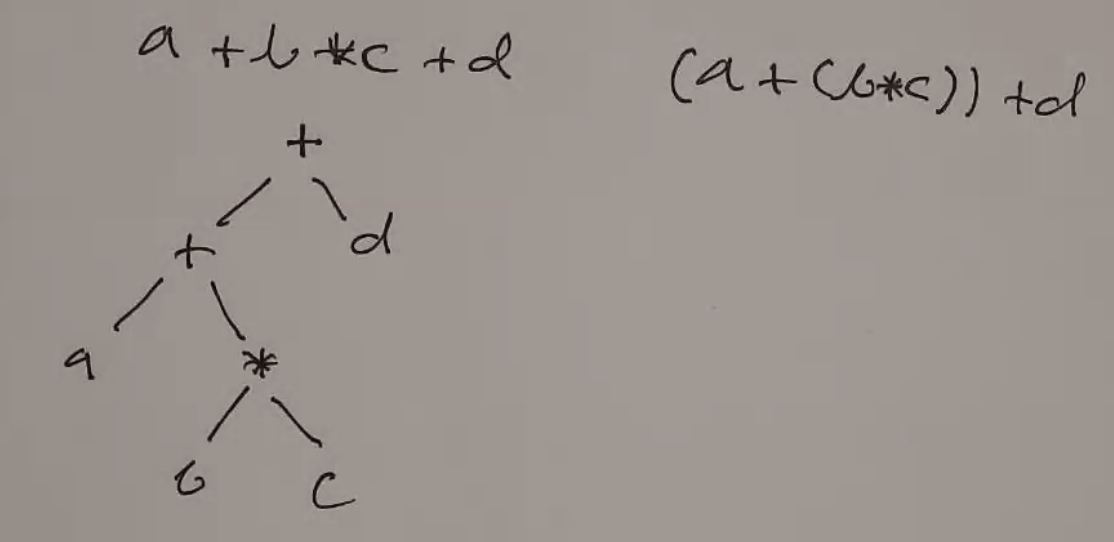 a + b * c + d
(a + (b*c)) + d
+
+ d
a
*
b c